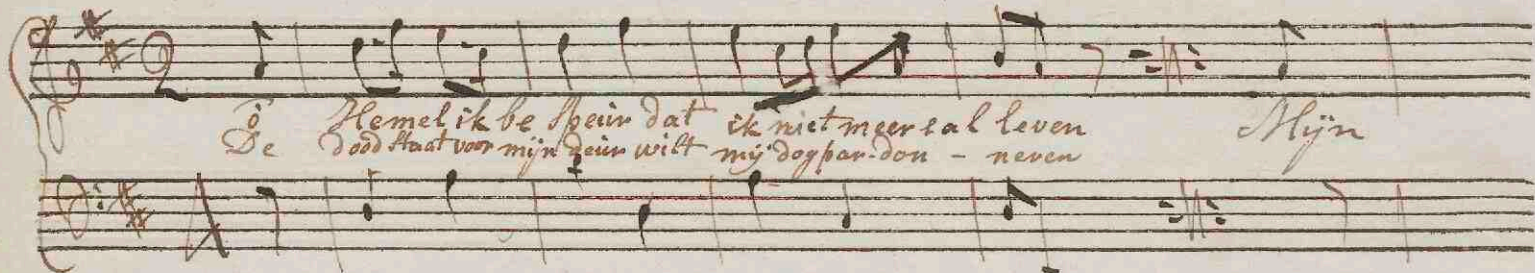 ô Hemel ik be speur dat ik niet meer sal leven Mijn
De dood staat voor mijn deur wilt mij dog par-don - neren